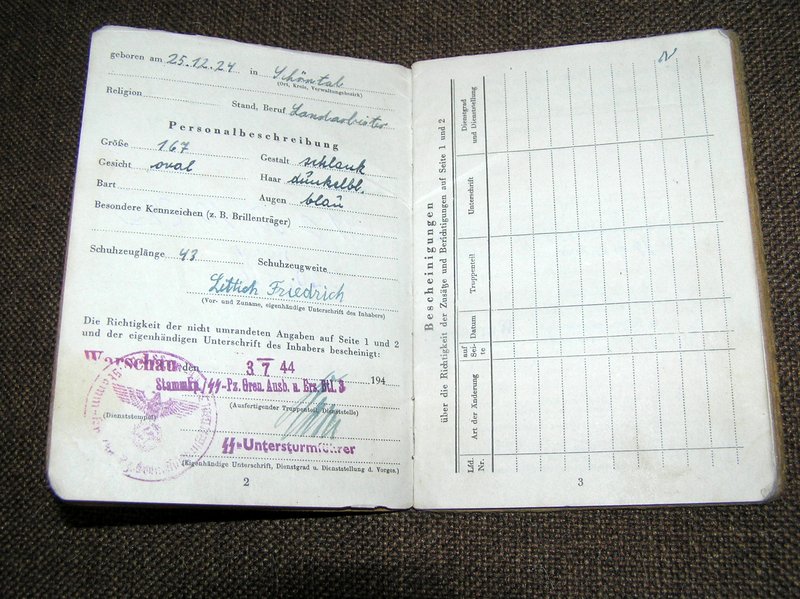 geboren am 25.12.24 in Schöntal
(Ort, Kreis, Verwaltungsbezirk)
Religion
Stand, Beruf Landarbeiter
Personalbeschreibung
Größe 167 Gestalt schlank
Gesicht oval Haar dunkelbl.
Bart Augen blau
Besondere Kennzeichen (z. B. Brillenträger)
Schuhzeuglänge 43 Schuhzeugweite
Lettich Friedrich
(Vor- und Zuname, eigenhändige Unterschrift des Inhabers)
Die Richtigkeit der nicht umrandeten Angaben auf Seite 1 und 2
und der eigenhändigen Unterschrift des Inhabers bescheinigt:
Warschau den 3 7 44 194
Stammkp./SS-Pz. Gren. Ausb. u. Ers. Btl. 3
(Ausfertigender Truppenteil, Dienststelle)
(Dienststempel)
SS-Untersturmführer
(Eigenhändige Unterschrift, Dienstgrad u. Dienststellung d. Vorges.)
2
Bescheinigungen
über die Richtigkeit der Zusätze und Berichtigungen auf Seite 1 und 2
Lfd. Nr.
Art der Änderung
auf Seite
Datum
Truppenteil
Unterschrift
Dienstgrad
und Dienststellung
3